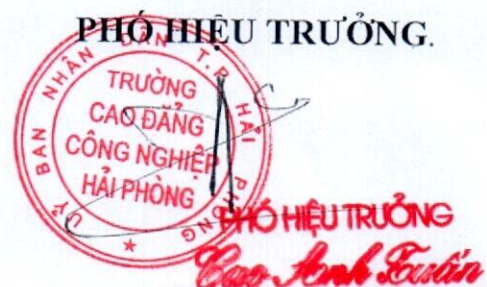 PHÓ HIỆU TRƯỞNG.
UỶ BAN NHÂN DÂN T.P HẢI PHÒNG
TRƯỜNG
CAO ĐẲNG
CÔNG NGHIỆP
HẢI PHÒNG
PHÓ HIỆU TRƯỞNG
Cao Anh Tuấn